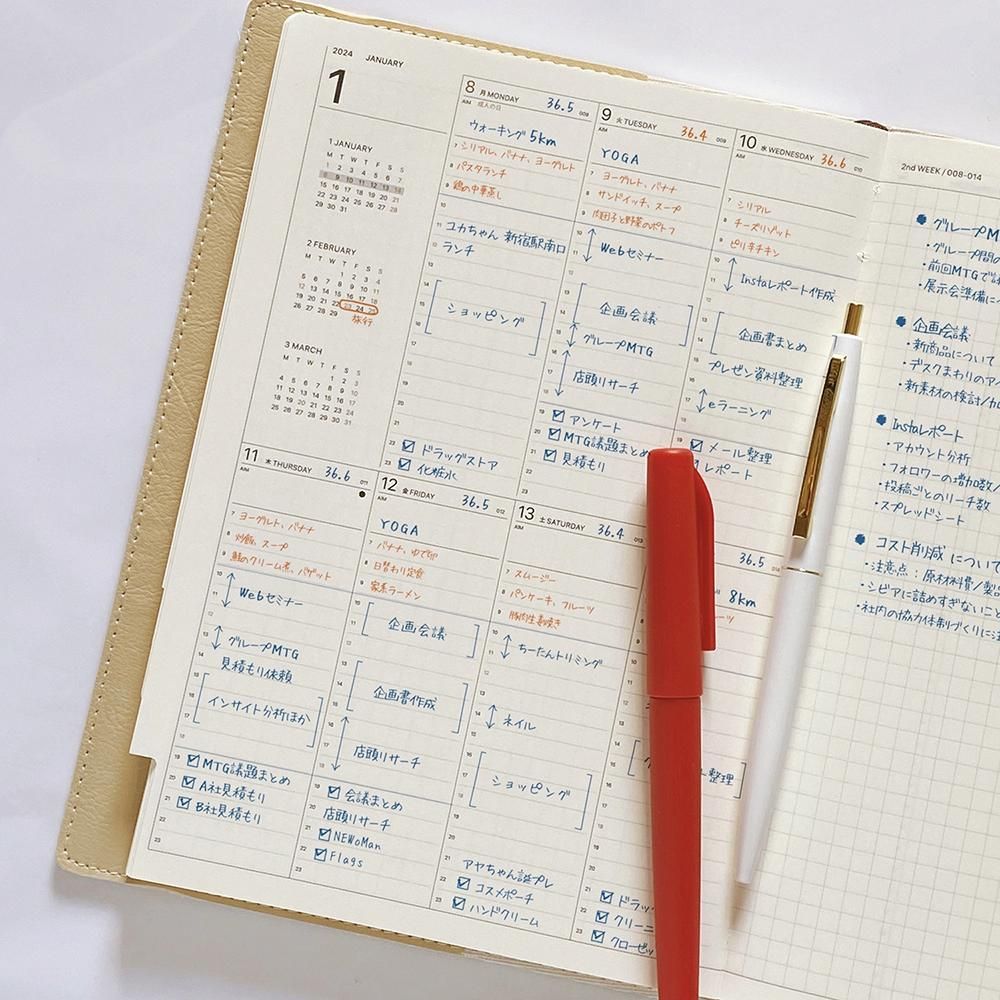 2024 JANUARY
1
1 JANUARY
M T W T F S S
1 2 3 4 5 6 7
8 9 10 11 12 13 14
15 16 17 18 19 20 21
22 23 24 25 26 27 28
29 30 31
2 FEBRUARY
M T W T F S S
1 2 3 4
5 6 7 8 9 10 11
12 13 14 15 16 17 18
19 20 21 22 23 24 25
26 27 28 29
旅行
3 MARCH
M T W T F S S
1 2 3
4 5 6 7 8 9 10
11 12 13 14 15 16 17
18 19 20 21 22 23 24
25 26 27 28 29 30 31
8 月 MONDAY 36.5 008
AIM 成人の日
ウォーキング 5km
シリアル、バナナ、ヨーグルト
パスタランチ
鶏の中華蒸し
ユカちゃん 新宿駅南口
ランチ
ショッピング
ドラッグストア
化粧水
9 火 TUESDAY 36.4 009
AIM
YOGA
ヨーグルト、バナナ
サンドイッチ、スープ
肉団子と野菜のポトフ
Webセミナー
企画会議
グループMTG
店頭リサーチ
アンケート
MTG議題まとめ
見積もり
10 水 WEDNESDAY 36.6 010
AIM
シリアル
チーズリゾット
ピリ辛チキン
Instaレポート作成
企画書まとめ
プレゼン資料整理
eラーニング
メール整理
レポート
11 木 THURSDAY 36.6 011
AIM
ヨーグルト、バナナ
炒飯、スープ
鮭のクリーム煮、バゲット
Webセミナー
グループMTG
見積もり依頼
インサイト分析ほか
MTG議題まとめ
A社見積もり
B社見積もり
12 金 FRIDAY 36.5 012
AIM
YOGA
バナナ、ゆで卵
日替わり定食
家系ラーメン
企画会議
企画書作成
店頭リサーチ
会議まとめ
店頭リサーチ
NEWoMan
Flags
13 土 SATURDAY 36.4 013
AIM
スムージー
パンケーキ、フルーツ
豚肉生姜焼き
ちーたんトリミング
ネイル
ショッピング
アヤちゃん誕プレ
コスメポーチ
ハンドクリーム
36.5 014
8km
整理
ドラッ
クリーニ
クローゼッ
2nd WEEK / 008-014
グループM
・グループ間の
・前回MTGで
・展示会準備に
企画会議
・新商品について
・デスクまわりのア
・新素材の検討/カ
Instaレポート
・アカウント分析
・フォロワーの増加数/
・投稿ごとのリーチ数
・スプレッドシート
コスト削減 について
・注意点：原材料費/製
・シビアに詰めすぎないこと
・社内の協力体制づくりに注